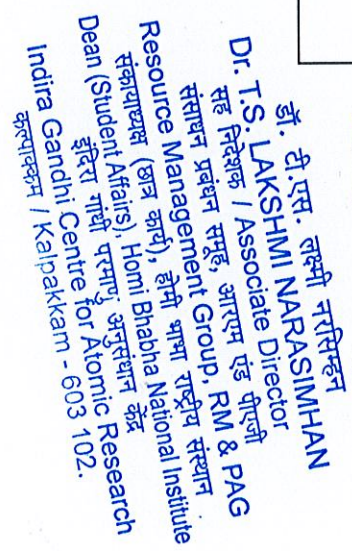 डॉ. टी.एस. लक्ष्मी नरसिम्हन
Dr. T.S. LAKSHMI NARASIMHAN
सह निदेशक / Associate Director
संसाधन प्रबंधन समूह, आरएम एंड पीएजी
Resource Management Group, RM & PAG
संकायाध्यक्ष (छात्र कार्य), होमी भाभा राष्ट्रीय संस्थान
Dean (Student Affairs), Homi Bhabha National Institute
इंदिरा गांधी परमाणु अनुसंधान केंद्र
Indira Gandhi Centre for Atomic Research
कल्पाक्कम / Kalpakkam - 603 102.